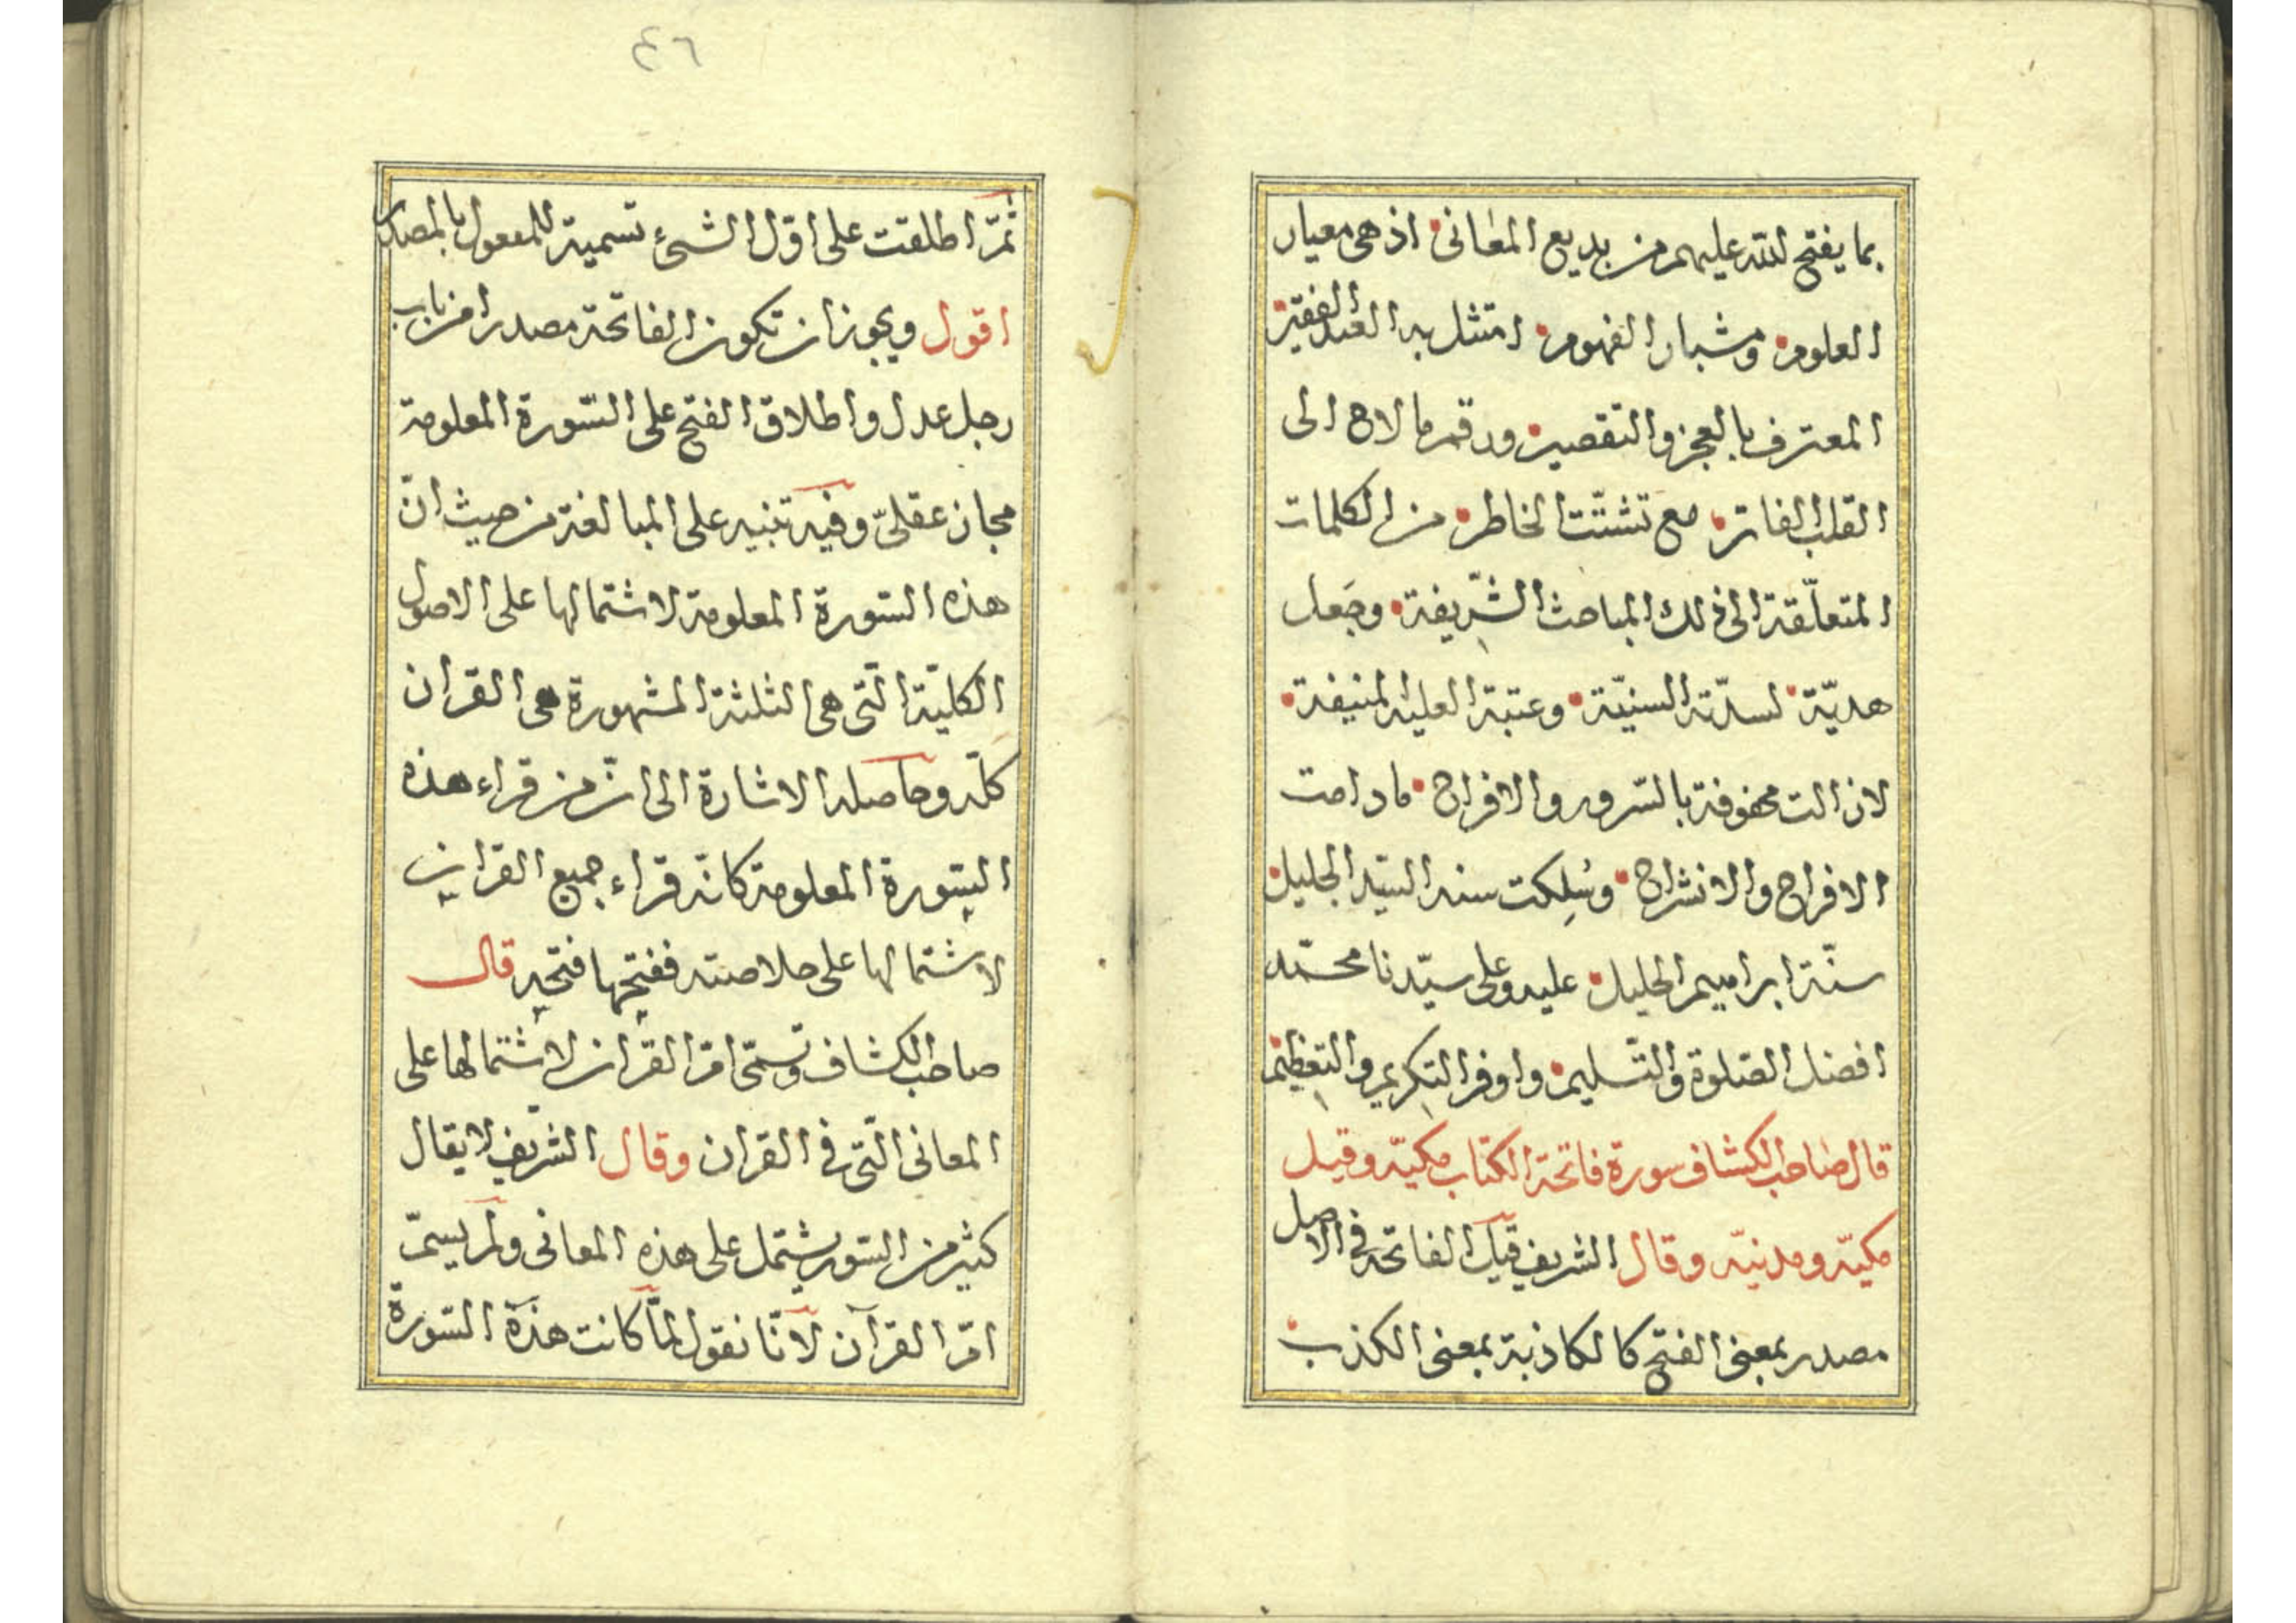 بما يفتح الله عليهم من بديع المعانى اذ هى معيار
العلوم ومسبار الفهوم امتثل به العبد الفقير
المعترف بالعجز والتقصير ورقم ما لاح الى
القلب الفاتر مع تشتّت الخاطر من الكلمات
المتعلّقة الى ذلك المباحث الشّريفة وجَعل
هديّة لسدّته السنيّة وعتبة العليه المنيفة
لازالت محفوفة بالسّرور والافراح مادامت
الافراح والانشراح وسُلِكت سنه السّيّد الجليل
سنّة ابراهيم الخليل عليه وعلى سيّدنا محمّد
افضل الصّلوة والتّسليم واوفر التكريم والتعظيم
قال صاحب الكشاف سورة فاتحة الكتاب مكيّه وقيل
مكيّه ومدنيّه وقال الشريف قيل الفاتحه فى الاصل
مصدر بمعنى الفتح كالكاذبة بمعنى الكذب
٤٦
ثمّ اطلقت على اوّل الشىء تسمية للمفعول بالمصدر
اقول ويجوز ان تكون الفاتحة مصدرا من باب
رجل عدل واطلاق الفتح على السّورة المعلومة
مجاز عقلىّ وفيه تنبيه على المبالغة من حيث انّ
هذه السّورة المعلومة لاشتمالها على الاصول
الكليّة الّتى هى الثلثة المشهورة هى القران
كلّه وحاصله الاشارة الى انّ من قراء هذه
السّورة المعلومة كانّه قراء جميع القران
لاشتمالها على خلاصته ففتحها فتحه قال
صاحب الكشاف وتسمّى امّ القران لاشتمالها على
المعانى الّتى فى القران وقال الشريف لا يقال
كثير من السّور يشتمل على هذه المعانى ولم يسمّ
امّ القرآن لانّا نقول لمّا كانت هذه السّورة